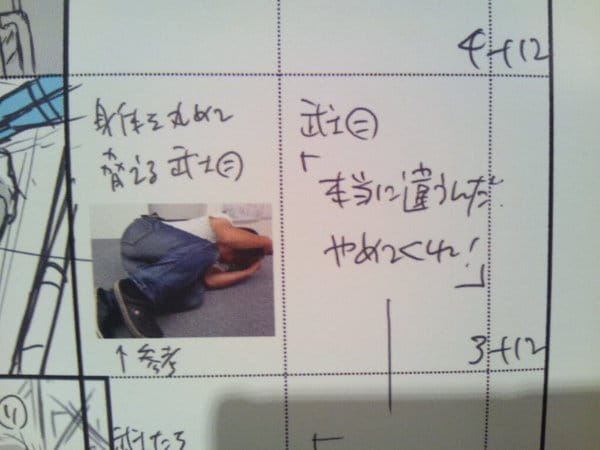 4+12
身体を丸めて
脅える 武士㊁
↑参考
武士㊁
「本当に違うんだ.
やめてくれ!」
3+12
武士たち
「